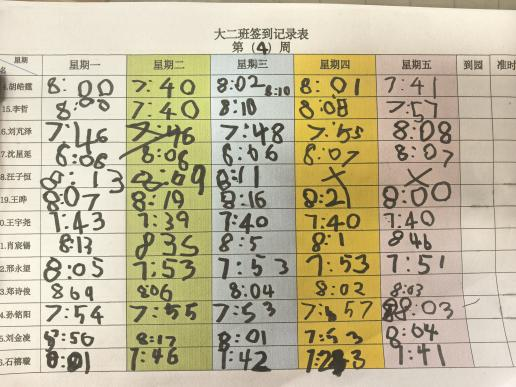 大二班签到记录表
第（4）周
星期 星期一 星期二 星期三 星期四 星期五 到园 准时
名
8:00 7:40 8:02 8:10 8:01 7:41
15.李哲 8:00 7:40 8:10 8:08 7:57
7:46 7:46 7:48 7:55 8:08
7.沈星延 8:06 8:06 8:06 8:07 8:07
8.汪子恒 8:13 8:09 8:11 × ×
19.王晔 8:07 8:19 8:16 8:21 8:00
0.王宇尧 7:43 7:39 7:40 7:40 7:40
1.肖宸锡 8:13 835 8:5 8:1 846
2.邢永望 8:05 7:53 7:53 7:53 7:51
3.郑诗俊 869 806 8:04 8:02 8:03
4.孙铭阳 7:54 7:55 7:53 7:57 8:03
5.刘金凌 7:50 8:17 8:01 7:53 8:04
6.石禧璇 8:01 7:46 7:42 7:41